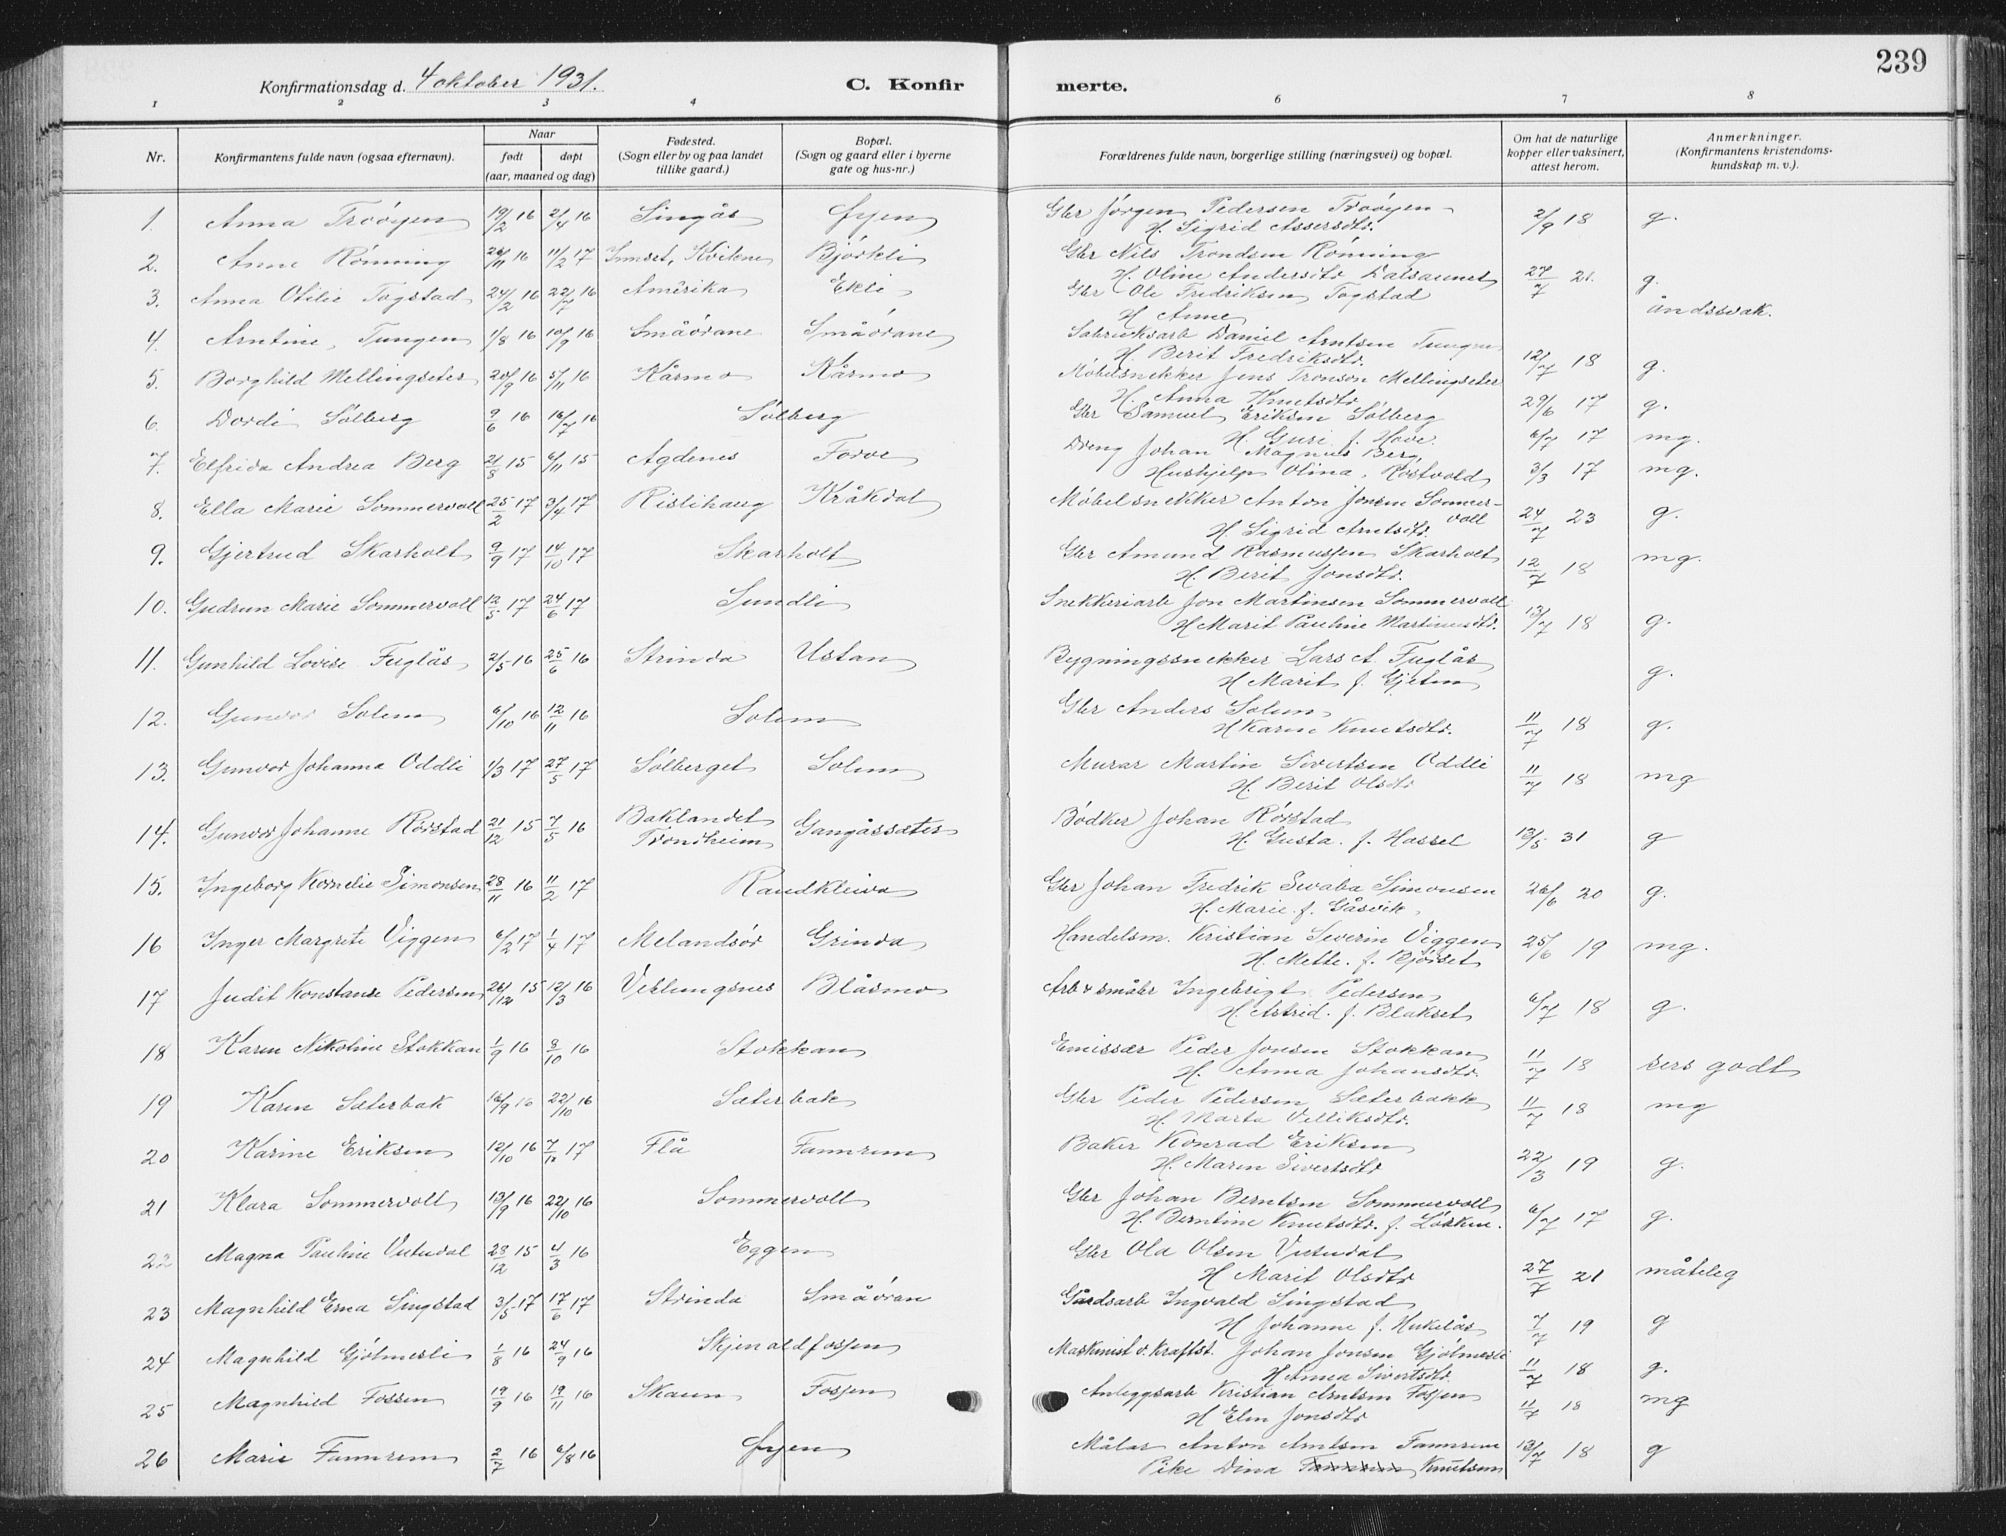 239
Konfirmationsdag d. 4 oktober 1931.
C. Konfirmerte.
1 2 3 4 6 7 8
Nr. Konfirmantens fulde navn (ogsaa efternavn). Naar født døpt (aar, maaned og dag) Fødested. (Sogn eller by og paa landet tillike gaard.) Bopæl. (Sogn og gaard eller i byerne gate og hus-nr.) Forældrenes fulde navn, borgerlige stilling (næringsvei) og bopæl. Om hat de naturlige kopper eller vaksinert, attest herom. Anmerkninger. (Konfirmantens kristendomskundskap m. v.).
1. Anna Troøyen 19/2 16 2/4 16 Singås Øyen Gbr Jørgen Pedersen Troøyen 2/9 18 g.
H. Sigrid Assersdtr.
2. Anne Rønning 26/11 16 11/2 17 Innset, Kvikne Bjørkli Gbr Nils Trondsen Rønning
H. Oline Andersdtr Dalsaunet 27/7 21. g.
3. Anna Otilie Togstad 24/2 16 22/7 16 Amerika Ekli Gbr Ole Fredriksen Togstad
H Anne åndssvak.
4. Arntine Tungen 1/8 16 10/9 16 Småørane Småørane Fabrikksarb Daniel Arntsen Tungen
H. Berit Fredriksdtr. 12/7 18 g.
5. Borghild Mellingseter 20/9 16 5/11 16 Kårmo Kårmo Møbelsnekker Jens Tronson Mellingseter
H. Anna Knutsdtr 29/6 17 g.
6. Dordi Solberg 9/6 16 16/7 16 Solberg Gbr Samuel Eriksen Solberg
H. Guri f. Hove. 6/7 17 mg.
7. Elfrida Andrea Berg 21/5 15 6/11 15 Agdenes Forve Dreng Johan Magnus Berg,
Hushjelp Olina Rostvold 3/3 17 mg.
8. Ella Marie Sommervoll 25/2 17 3/4 17 Ristihaug Kråkdal Møbelsnekker Anton Jonsen Sommervoll 24/7 23 g.
H. Sigrid Arntsdtr.
9. Gjertrud Skarholt 9/9 17 14/10 17 Skarholt Gbr Amund Rasmussen Skarholt mg.
H. Berit Jonsdtr. 12/7 18
10. Gudrun Marie Sommervoll 12/5 17 24/6 17 Sundli Snekkeriarb Jon Martinsen Sommervoll
H Marit Pauline Martinusdtr. 13/7 18 g.
11. Gunhild Lovise Fuglås 2/5 16 25/6 16 Strinda Ustan Bygningssnekker Lars A. Fuglås
H Marit f. Gjeten g.
12. Gunvor Solem 6/10 16 12/11 16 Solem Gbr Anders Solem
H Karen Knutsdtr. 11/7 18 g.
13. Gunvor Johanna Oddli 1/3 17 27/5 17 Solberget Solem Murar Martin Sivertsen Oddli
H. Berit Olsdtr 11/7 18 mg
14. Gunvor Johanne Rørstad 21/12 15 7/5 16 Baklandet Trondheim Gangåssæter Bødker Johan Rørstad
H. Gusta. f. Hassel 13/5 31 g
15. Ingeborg Kornelie Simonsen 28/11 16 11/2 17 Raudkleiva Gbr Johan Fredrik Svaba Simonsen 26/6 20 g.
H. Marie. f. Gåsvik,
16 Inger Margrete Viggen 6/2 17 1/4 17 Melandsør Grinda Handelsm. Kristian Severin Viggen 25/6 19 mg.
H. Mette. f. Bjørset
17 Judit Konstanse Pedersen 26/12 15 12/3 16 Veblungsnes Blåsmo Arb & småbr Ingebrigt Pedersen 6/7 18 g.
H. Astrid. f. Blakset
18 Karen Nikoline Stokkan 1/9 16 8/10 16 Stokkan Emissær Peder Jonsen Stokkan 11/7 18 sers godt
H. Anna Johansdtr.
19 Karen Sæterbak 16/9 16 22/10 16 Sæterbak Gbr Peder Pedersen Sæterbakk 11/7 18 mg
H. Marta Velliksdtr.
20 Karine Eriksen 12/10 16 7/12 17 Flå Fannrem Baker Konrad Eriksen
H. Maren Sivertsdtr 22/3 19 g.
21 Klara Sommervoll 13/9 16 22/10 16 Sommervoll Gbr Johan Berntsen Sommervoll
H. Berntine Knutsdtr. f. Løkken. 6/7 17 g.
22 Magna Pauline Vutudal 28/12 15 4/3 16 Eggen Gbr Ola Olsen Vutudal
H Marit Olsdtr 27/7 21 måteleg
23 Magnhild Erna Singstad 3/5 17 17/6 17 Strinda Småøran Gårdsarb Ingvald Singstad
H Johanne f. Hukelås 7/7 19 g
24 Magnhild Gjølmesli 1/8 16 24/9 16 Skjenaldfossen Maskinist v. Kraftst. Johan Jonsen Gjølmesli
H Anna Sivertsdtr. 11/7 18 g.
25 Magnhild Fossen 19/9 16 19/11 16 Skaun Fossen Anleggsarb Kristian Arntsen Fossen
H Elen Jonsdtr 11/7 18 mg
26 Marie Fannrem 2/7 16 6/8 16 Øyen Målar Anton Arntsen Fannrem 13/7 18 g
Pike Dina Fannrem Knutsen